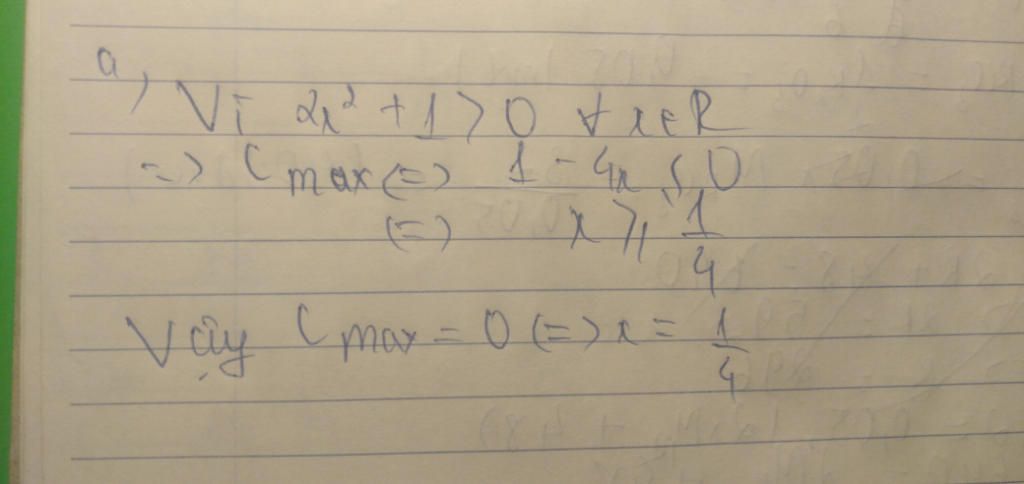 a,
Vì 2x² + 1 > 0 ∀ x ∈ R
=> C max <=> 1 - 4x ≤ 0
<=> x ≥ 1/4
Vậy C max = 0 <=> x = 1/4